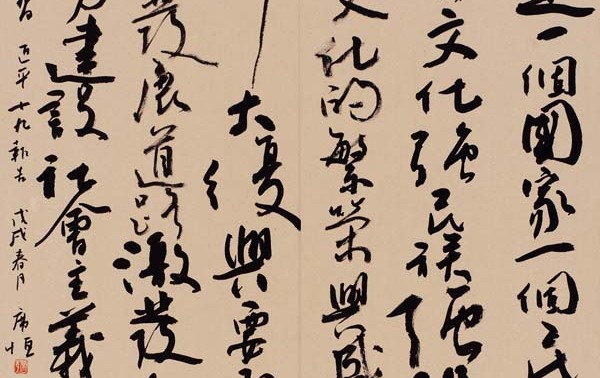 是一個國家一個民
文化強民族強
文化的繁榮興盛
大復興要
發展道路激發
力建設社會主義
近平十九報告 戊戌春月 席恒